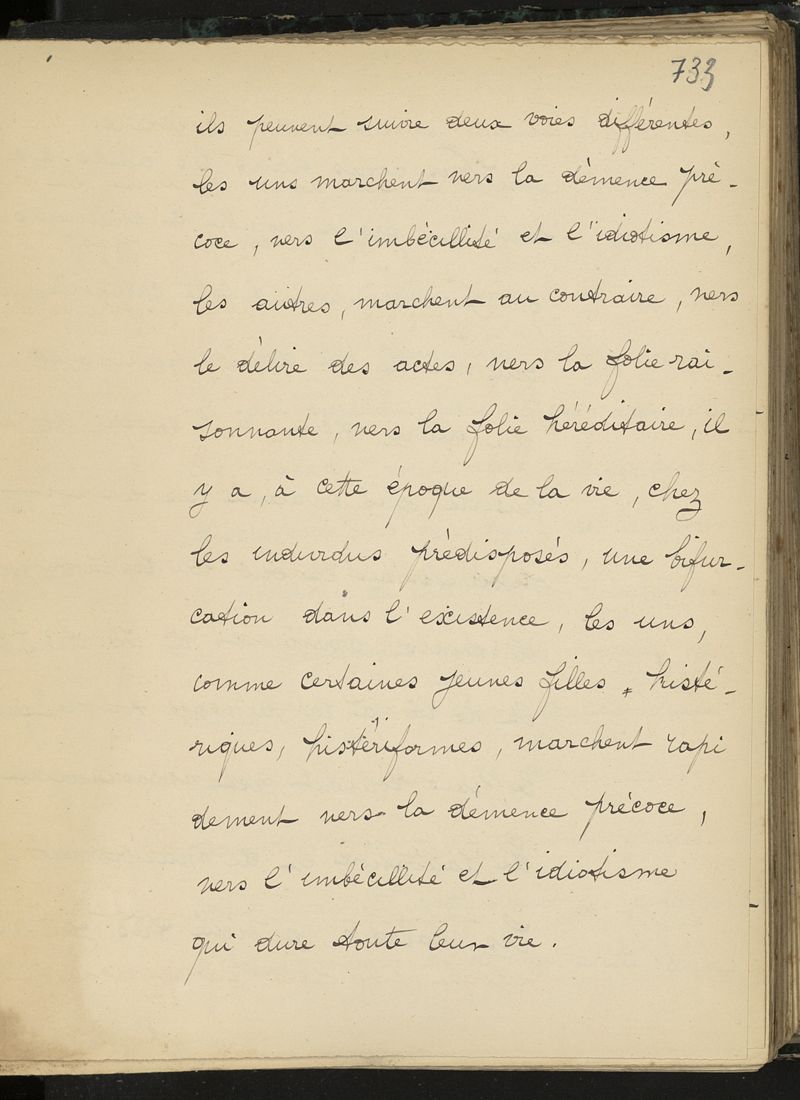 733
ils peuvent suivre deux voies différentes,
les uns marchent vers la démence pré-
coce, vers l'imbécillité et l'idiotisme,
les autres, marchent au contraire, vers
le délire des actes, vers la folie rai-
sonnante, vers la folie héréditaire, il
y a, à cette époque de la vie, chez
les individus prédisposés, une bifur-
cation dans l'existence, les uns,
comme certaines jeunes filles, histé-
riques, histériformes, marchent rapi
dement vers la démence précoce,
vers l'imbécillité et l'idiotisme
qui dure toute leur vie.